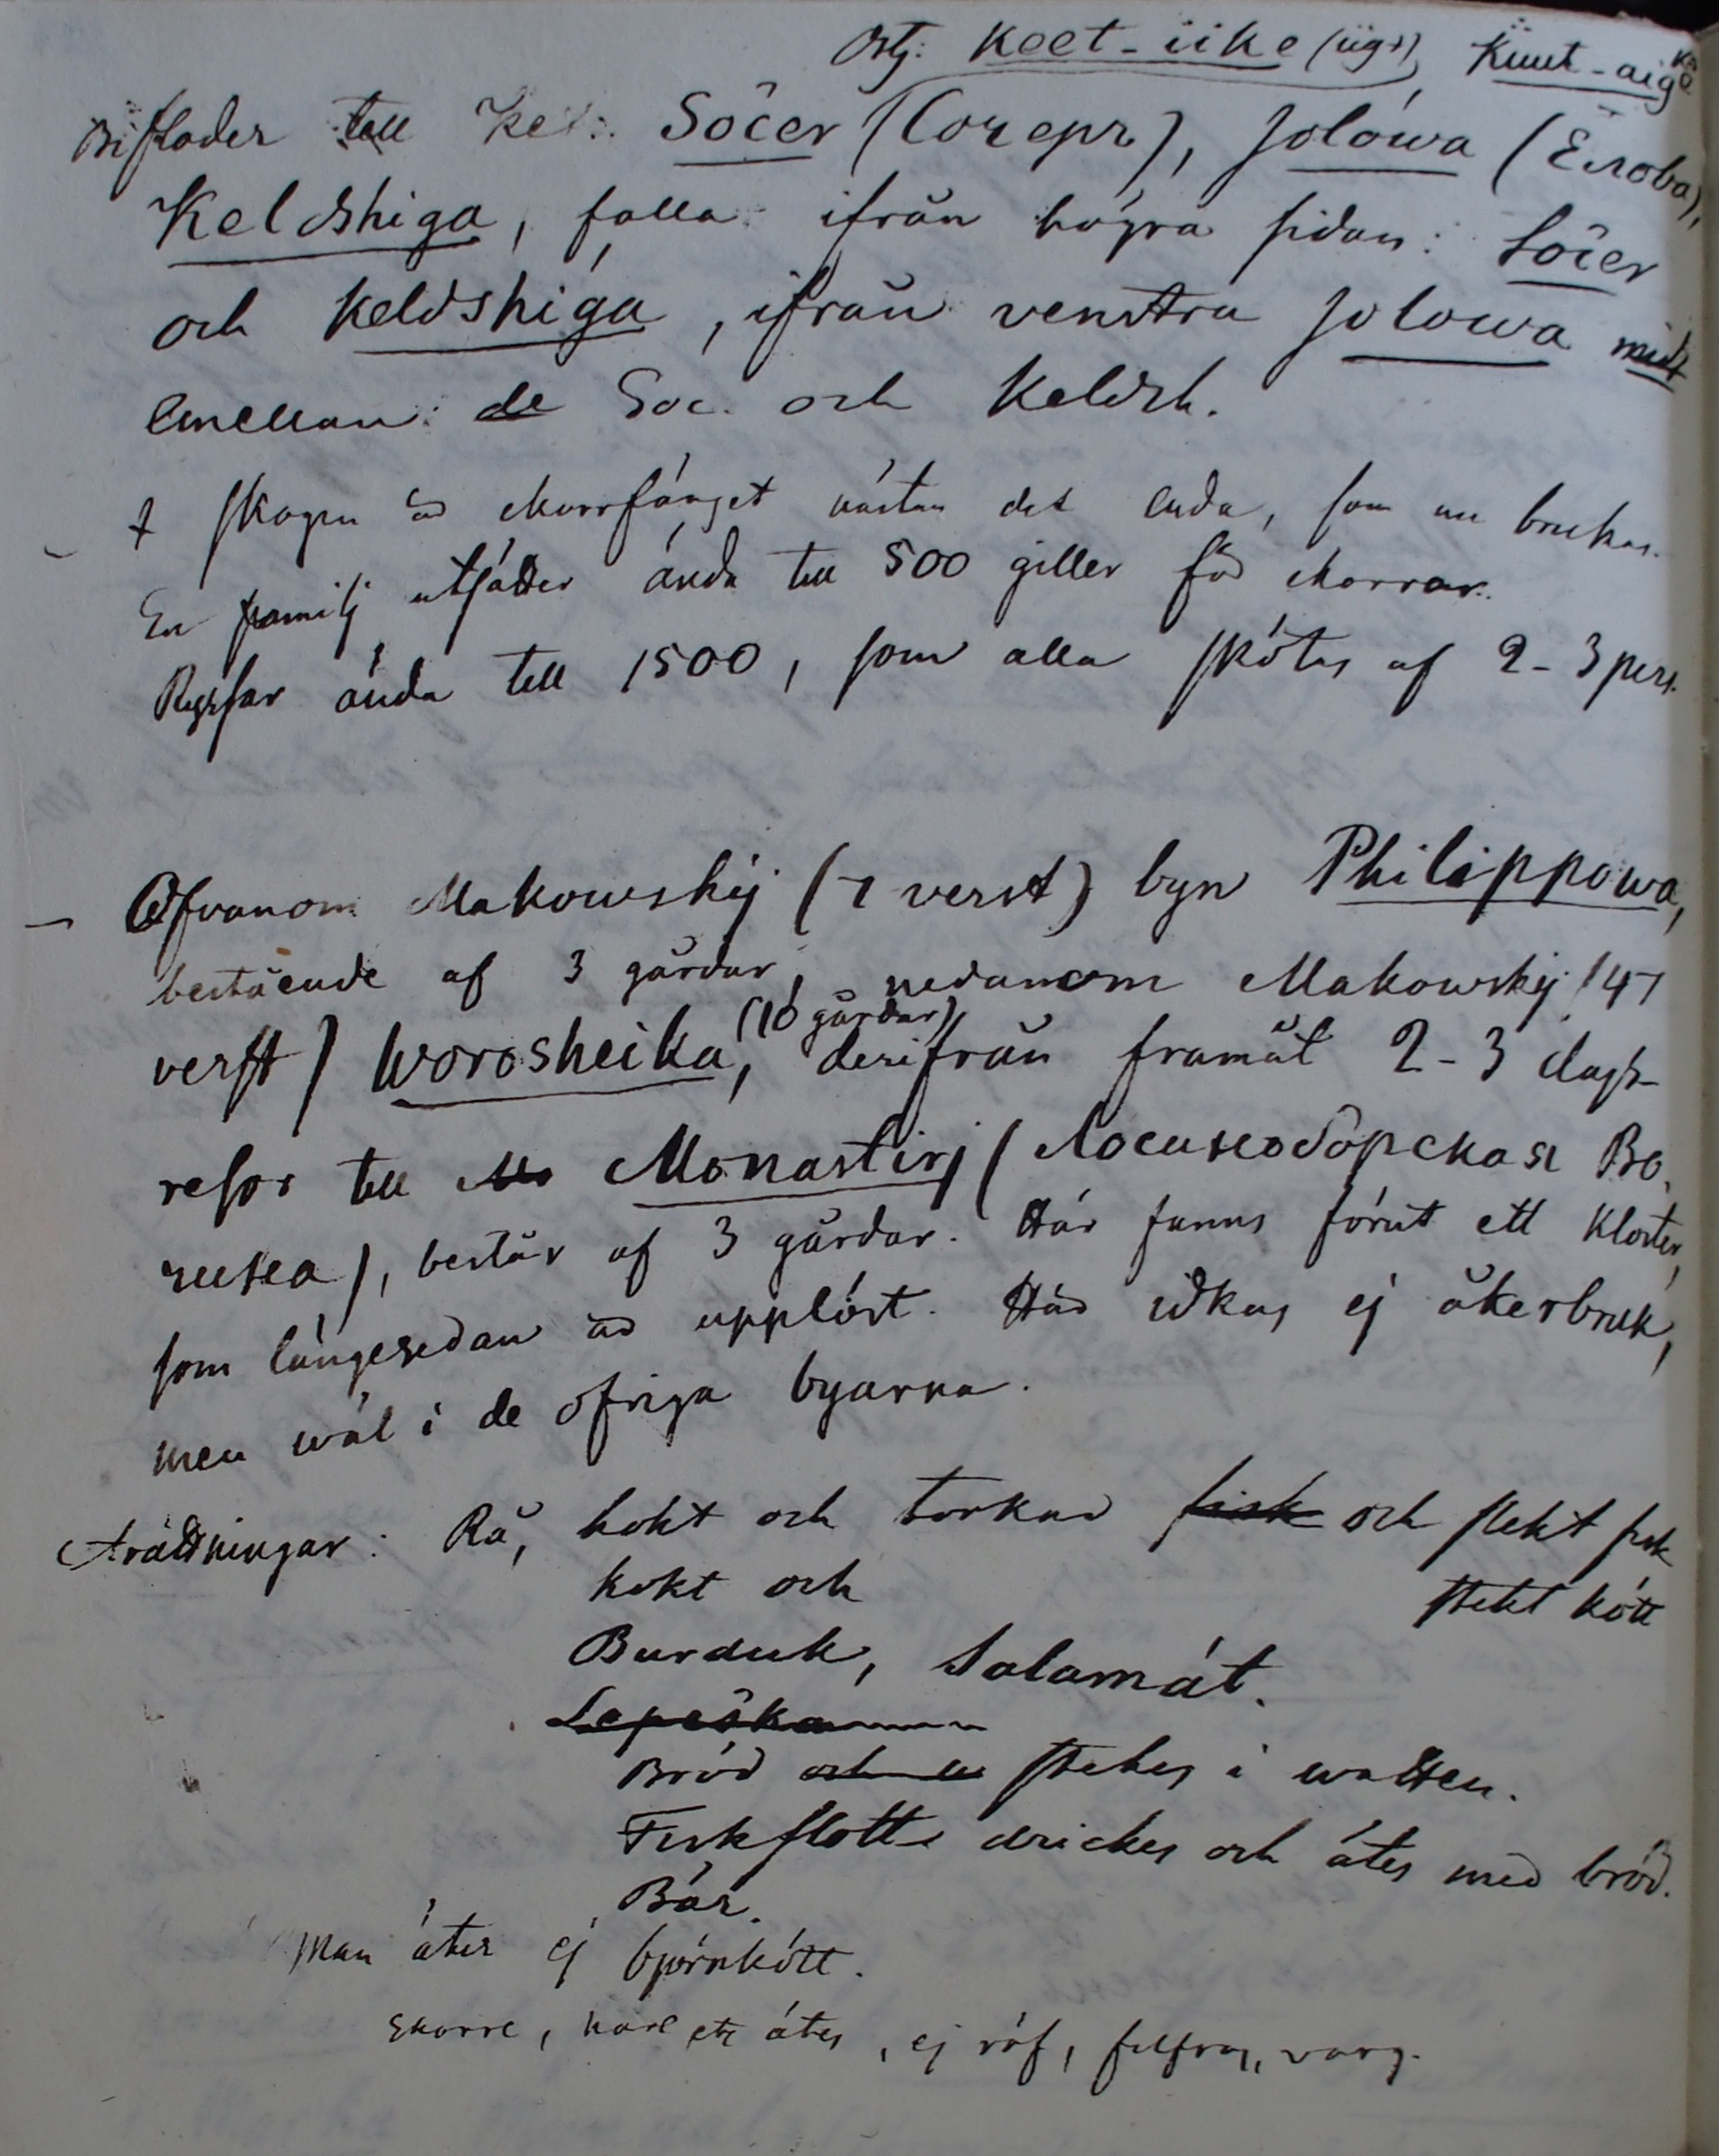 Ostj: Keet-iike (iigə), Küut-aigə
Bifloder till Ket: Sočer (Сочеръ), Jolówa (Елова),
Keldshiga, falla ifrån högra sidan: Sočer
och Keldshiga, ifrån venstra Jolowa midt
emellan: de Soc. och Keldsh.
I skogen är ekorrfånget nästan det enda, som nu brukas.
En familj utsätter ända till 500 giller för ekorrar.
Ryssar ända till 1500, som alla skötas af 2-3 pers.
Ofvanom Makowskij (7 verst) byn Philippowa,
bestående af 3 gårdar, nedanom Makowskij (47
verst) Worosheika, (10 gårdar) derifrån framåt 2-3 dags-
resor till Mo Monastirj (Лосиноборская Во-
лочка), består af 3 gårdar. Här fanns förut ett Kloster,
som längesedan är upplöst. Här idkas ej åkerbruk,
men wäl i de öfriga byarna.
Anrättningar: Rå, kokt och torkad fisk och stekt fisk
kokt och stekt kött
Burduk, Salamát.
Lepeška
Bröd och stekes i watten.
Fiskflott drickes och ätes med bröd.
Bär.
Man äter ej björnkött.
Ekorre, hare etc ätes, ej räf, filfras, varg.